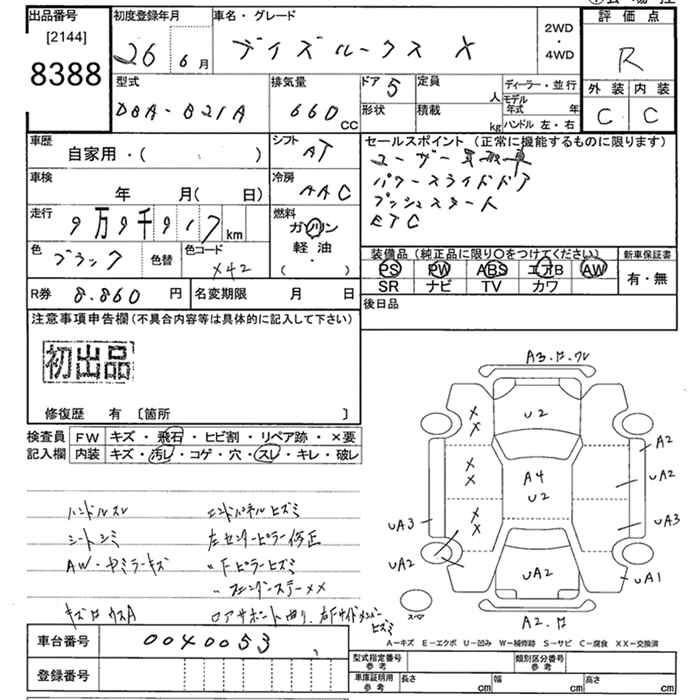 出品番号
[2144]
8388
初度登録年月
26 6月
車名・グレード
デイズルークス X
2WD
・
4WD
評価点
R
外装 内装
C C
型式
DBA-B21A
排気量
660 CC
ドア 5
形状
定員 人
積載 kg
ディーラー・並行
モデル年式 年
ハンドル 左・右
車歴
自家用・( )
シフト
AT
車検
年 月( 日)
冷房
AAC
走行
9万9千917km
燃料
ガソリン
軽油
・
( )
色
ブラック
色替
色コード
X42
R券 8.860 円
名変期限 月 日
セールスポイント (正常に機能するものに限ります)
ユーザー買取車
パワースライドドア
プッシュスタート
ETC
装備品 (純正品に限り〇をつけてください)
PS PW ABS エアB AW
SR ナビ TV カワ
新車保証書
有・無
後日品
注意事項申告欄(不具合内容等は具体的に記入して下さい)
初出品
修復歴 有 〔箇所 〕
検査員
記入欄
FW キズ・飛石・ヒビ割・リペア跡・×要
内装 キズ・汚レ・コゲ・穴・スレ・キレ・破レ
ハンドルスレ
シートシミ
AW・ヤミラーキズ
エンドパネルヒズミ
左センターピラー修正
〃Fピラーヒズミ
〃フェンダーステーメメ
ロアサポート曲り、右Fサイドメンバーヒズミ
A3.
U2
A4
U2
UA2
A2.
A2
UA2
UA3
UA1
UA3
UA2
A-キズ E-エクボ U-凹み W-補修跡 S-サビ C-腐食 XX-交換済
車台番号 0040053
登録番号
型式指定番号
参考
類別区分番号
参考
車庫証明用
参考
長さ cm
幅 cm
高さ cm